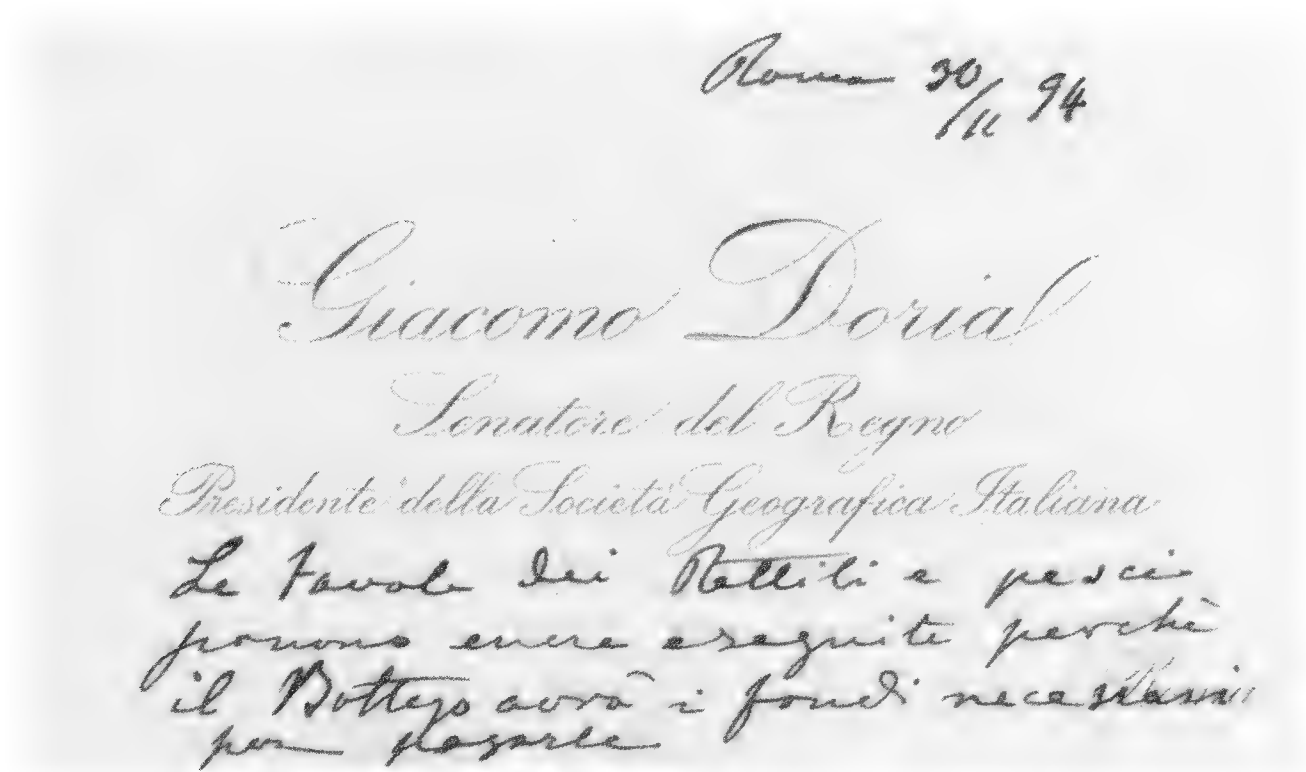 Roma 30/11 94
Giacomo Doria
Senatore del Regno
Presidente della Società Geografica Italiana
Le tavole dei Rettili e pesci
possono essere eseguite perchè
il Bottego avrà i fondi necessari
per pagarle